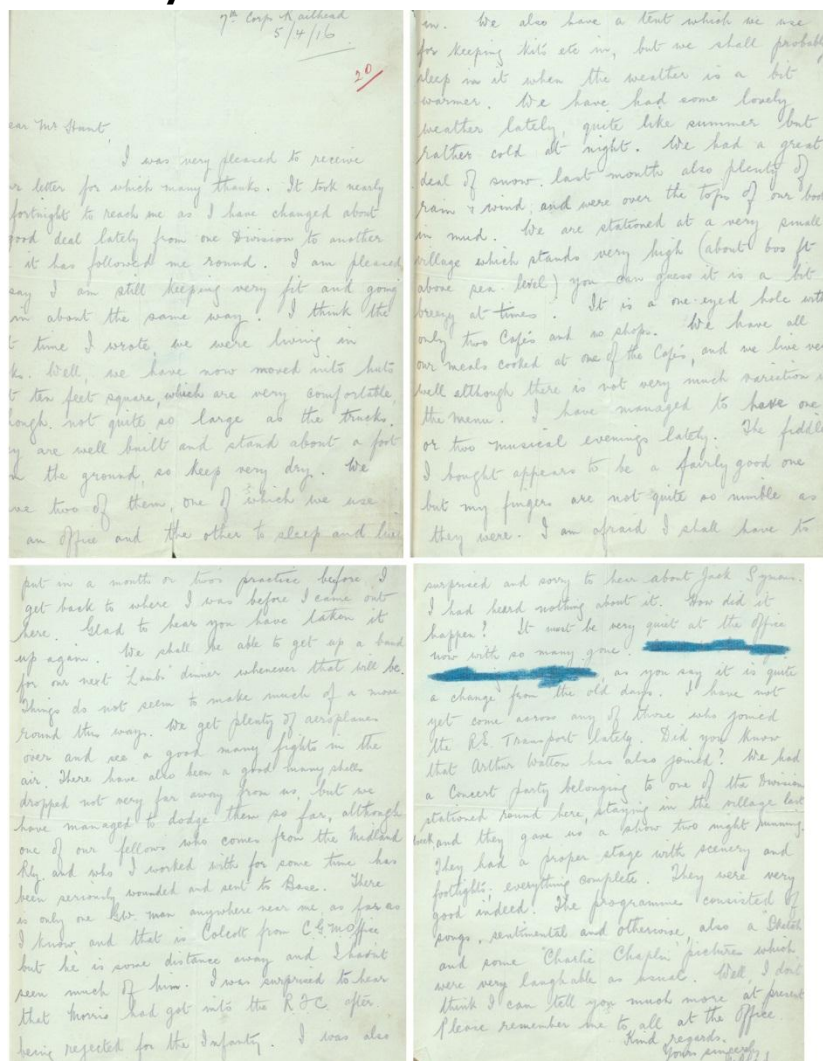 7th Corps Railhead
5/4/16
20
ear Mr Hunt,
I was very pleased to receive
r letter for which many thanks. It took nearly
fortnight to reach me as I have changed about
ood deal lately from one Division to another
it has followed me round. I am pleased
say I am still keeping very fit and going
n about the same way. I think the
t time I wrote, we were living in
ks. Well, we have now moved into huts
t ten feet square, which are very comfortable,
hough not quite so large as the trucks.
y are well built and stand about a foot
m the ground, so keep very dry. We
ve two of them, one of which we use
an office and the other to sleep and live
in. We also have a tent which we use
for keeping kits etc in, but we shall probabl
sleep in it when the weather is a bit
warmer. We have had some lovely
weather lately, quite like summer but
rather cold at night. We had a great
deal of snow last month also plenty of
rain & wind, and were over the tops of our boot
in mud. We are stationed at a very small
village which stands very high (about 600 ft
above sea level) you can guess it is a bit
breezy at times. It is a one-eyed hole with
only two Cafés and no shops. We have all
our meals cooked at one of the Cafés, and we live ver
well although there is not very much variation i
the menu. I have managed to have one
or two musical evenings lately. The fiddle
I bought appears to be a fairly good one
but my fingers are not quite so nimble as
they were. I am afraid I shall have to
put in a month or two's practice before I
get back to where I was before I came out
here. Glad to hear you have taken it
up again. We shall be able to get up a band
for our next "Lambs" dinner whenever that will be.
Things do not seem to make much of a move
round this way. We get plenty of aeroplanes
over and see a good many fights in the
air. There have also been a good many shells
dropped not very far away from us, but we
have managed to dodge them so far, although
one of our fellows who comes from the Midland
Rly. and who I worked with for some time has
been seriously wounded and sent to Base. There
is only one G.W. man anywhere near me as far as
I know and that is Colcott from C.G.M. Office
but he is some distance away and I havn't
seen much of him. I was surprised to hear
that Morris had got into the R.F.C. after
being rejected for the Infantry. I was also
surprised and sorry to hear about Jack Symons.
I had heard nothing about it. How did it
happen? It must be very quiet at the office
now with so many gone.
, as you say it is quite
a change from the old days. I have not
yet come across any of those who joined
the R.E. Transport lately. Did you know
that Arthur Watton has also joined? We had
a Concert party belonging to one of the Divisions
stationed round here, staying in the village last
week and they gave us a show two night running.
They had a proper stage with scenery and
footlights, everything complete. They were very
good indeed. The programme consisted of
songs, sentimental and otherwise, also a Sketch
and some "Charlie Chaplin" pictures which
were very laughable as usual. Well, I don't
think I can tell you much more at present
Please remember me to all at the office.
Kind regards.
Yours sincerely